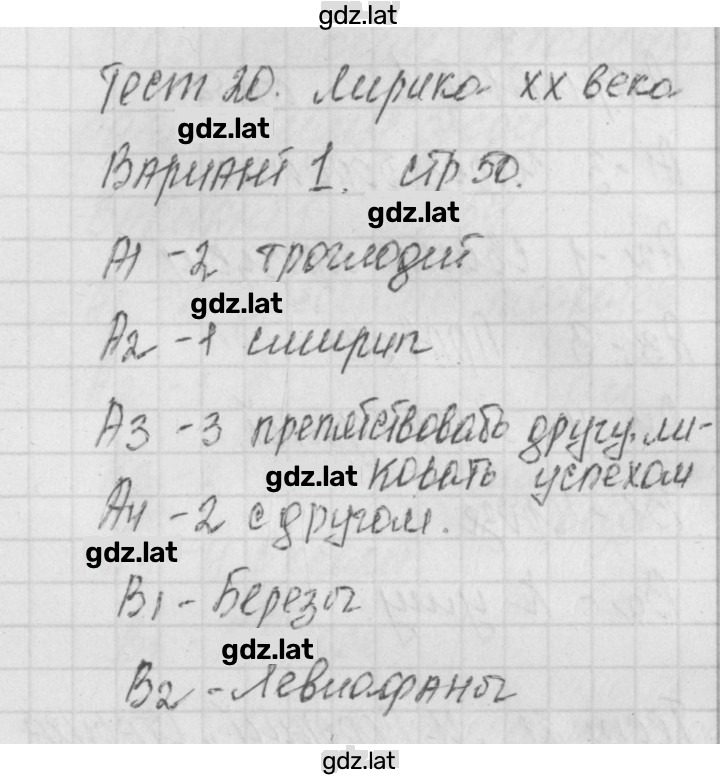 gdz.lat
Тест 20. Лирика XX века
gdz.lat
Вариант 1. стр 50.
gdz.lat
А1 - 2 троглодит
gdz.lat
А2 - 1
А3 - 3 препятствовать другу, ли-
gdz.lat ковать успехом
А4 - 2 с другом.
gdz.lat
В1 - Березы
gdz.lat
В2 - Левиафаны
gdz.lat